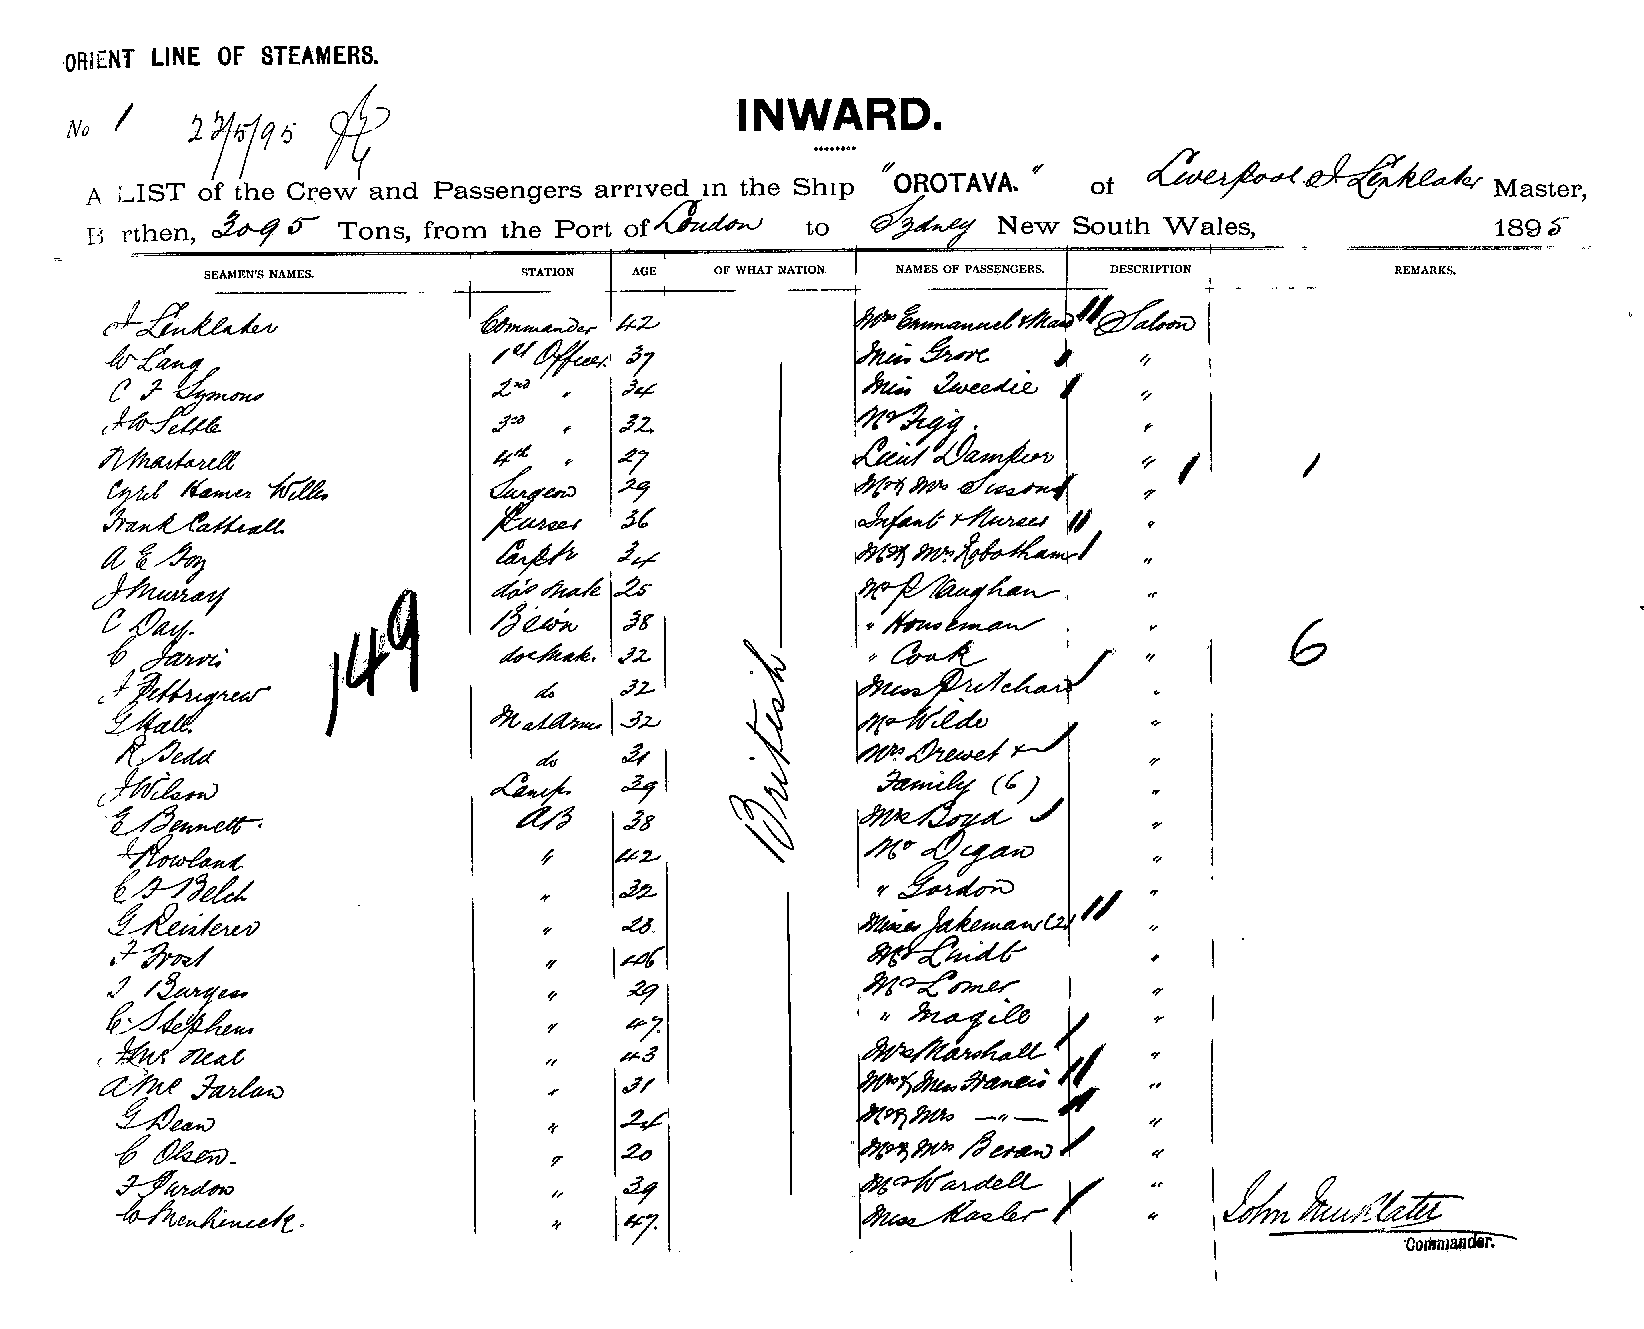 ORIENT LINE OF STEAMERS.
No 1 27/5/95
INWARD.
A LIST of the Crew and Passengers arrived in the Ship "OROTAVA." of Liverpool J Linklater Master,
B rthen, 3095 Tons, from the Port of London to Sydney New South Wales, 1895
SEAMEN'S NAMES. STATION AGE OF WHAT NATION. NAMES OF PASSENGERS. DESCRIPTION REMARKS.
J Linklater Commander 42 Mrs Emmanuel & Maid Saloon
W Lang 1st Officer 37 Miss Grove "
C F Symons 2nd " 34 Miss Tweedie "
J W Settle 3rd " 32 Mr Figg. "
R Martorell 4th " 27 Lieut Dampier " 1
Cyril Hamer Willis Surgeon 29 Mr & Mrs Sissons "
Frank Cathrall Purser 36 Infant & Nurses "
A E Foy Carptr 34 Mr & Mrs Robotham "
J Murray do's Mate 25 Mr P Vaughan "
C Day. Bswn 38 " Houseman "
149
C Jarvis do Mate. 32 " Cook " 6
J Pettrigrew do 32 Miss Pritchard "
G Hall. M at Arms 32 Mr Wilde "
British
R Bedd do 31 Mrs Drewet & "
J Wilson Lamps 39 Family (6) "
E Bennett. AB 38 Mrs Boyd "
J Rowland " 42 Mr Digan "
C F Belch " 32 " Gordon "
G Reisterer " 28 Misses Jakeman (2) "
F Frost " 46 Mr Lindt "
J Burgess " 29 Mr Lomer "
C. Stephens " 47. " Magill "
J Mc Neal " 43 Mrs Marshall "
A Mc Farlan " 31 Mrs & Miss Francis "
G Dean " 24 Mr & Mrs — " — "
C Olsen. " 20 Mr & Mrs Bevan "
J Purdon " 39 Mr Wardell "
W Menhenick. " 47. Miss Kasler " John Linklater
Commander.